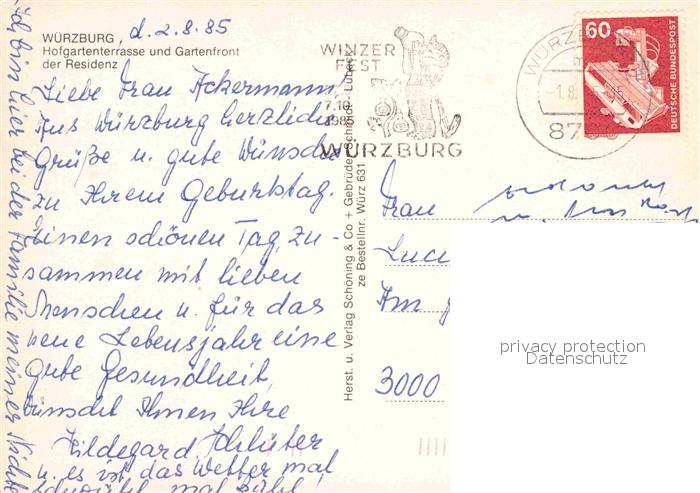 WÜRZBURG, d. 2.8.85
Hofgartenterrasse und Gartenfront
der Residenz
Liebe Frau Ackermann,
Aus Würzburg herzliche
Grüße u. gute Wünsche
zu Ihrem Geburtstag.
Einen schönen Tag, zu-
sammen mit lieben
Menschen u. für das
neue Lebensjahr eine
gute Gesundheit,
wünscht Ihnen Ihre
Hildegard Schlüter
u. es ist das Wetter mal
mal kühl,
Ich bin hier bei der Familie meiner Nichte
Herst. u. Verlag Schöning & Co + Gebrüder Schmidt · Lübeck
ze Bestellnr. Würz 631
WINZER
FEST
7.10.
1985
WÜRZBURG
WÜRZB
60
DEUTSCHE BUNDESPOST
Frau
Luci
Am
3000
privacy protection
Datenschutz